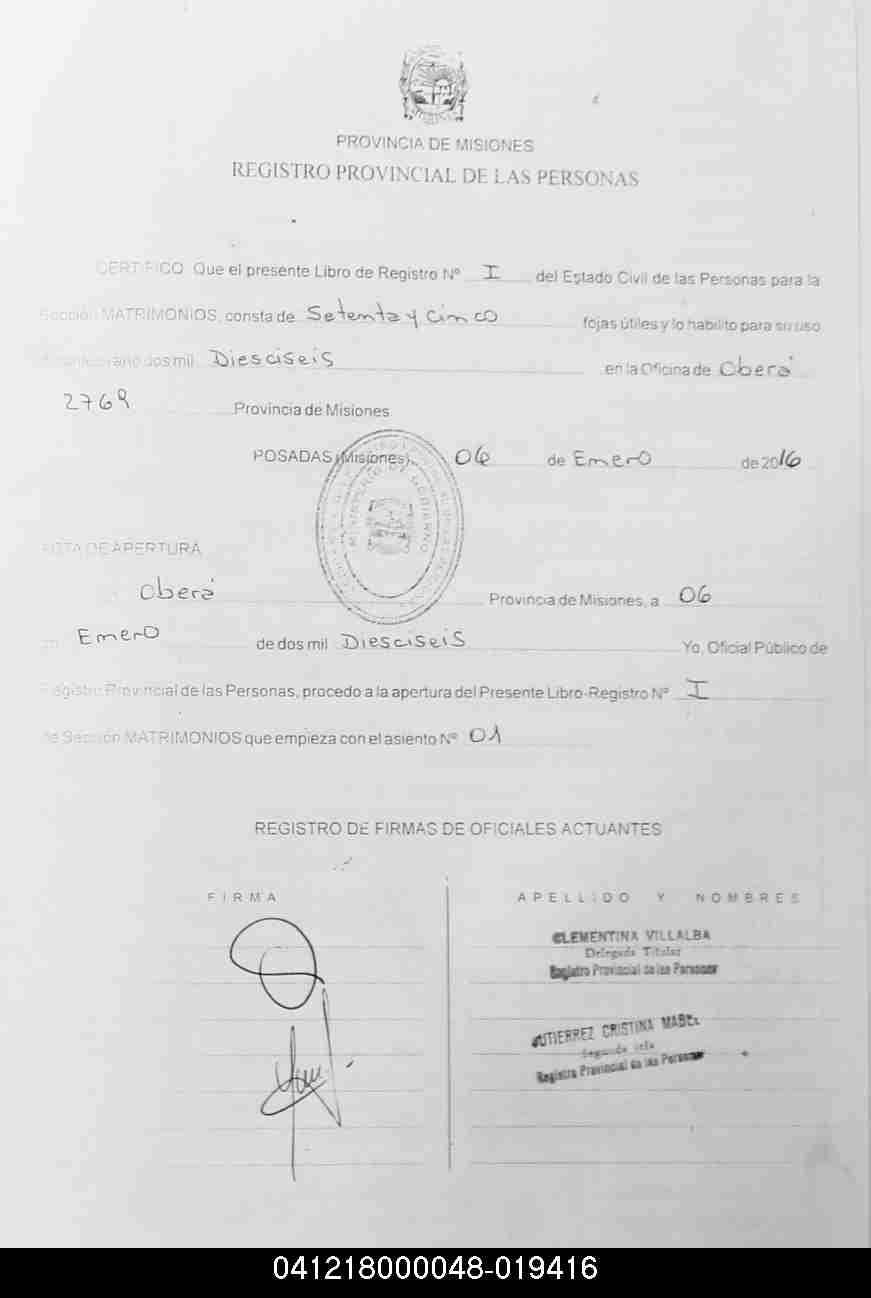 PROVINCIA DE MISIONES
REGISTRO PROVINCIAL DE LAS PERSONAS
CERTIFICO Que el presente Libro de Registro Nº I del Estado Civil de las Personas para la
Sección MATRIMONIOS, consta de Setenta y Cinco fojas útiles y lo habilito para su uso
año dos mil Diesciseis en la Oficina de Oberá
2769 Provincia de Misiones
POSADAS (Misiones) 06 de Enero de 2016
MINISTERIO DE GOBIERNO
NOTA DE APERTURA
Oberá Provincia de Misiones, a 06
Enero de dos mil Diesciseis Yo, Oficial Público de
Registro Provincial de las Personas, procedo a la apertura del Presente Libro-Registro Nº I
de Sección MATRIMONIOS que empieza con el asiento Nº 01
REGISTRO DE FIRMAS DE OFICIALES ACTUANTES
FIRMA APELLIDO Y NOMBRES
CLEMENTINA VILLALBA
Delegada Titular
Registro Provincial de las Personas
GUTIERREZ CRISTINA MABEL
Segunda Jefa
Registro Provincial de las Personas
041218000048-019416